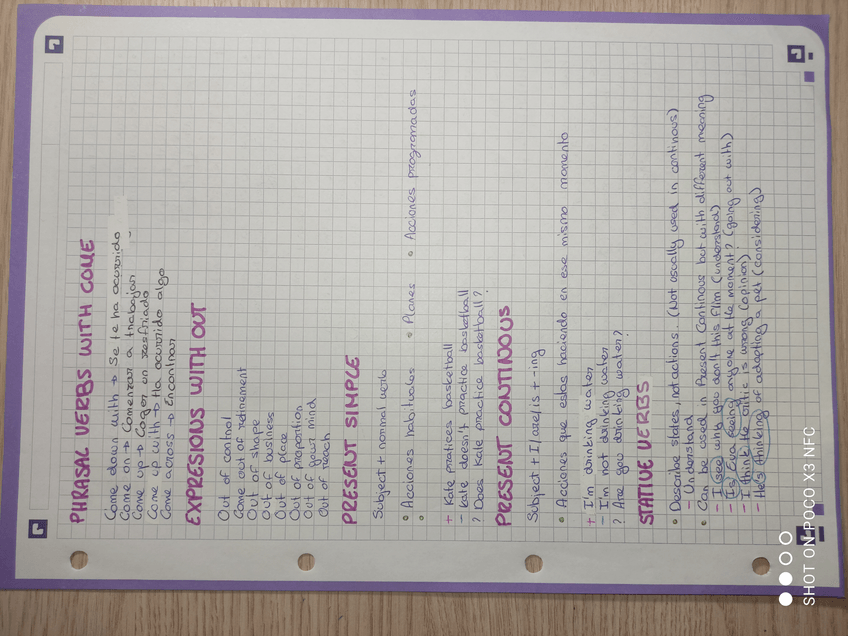 PHRASAL VERBS WITH COME
Come down with → Se te ha ocurrido
Come on → Comenzar a trabajar
Come up → Coger un resfriado
Come up with → Ha ocurrido algo
Come across → Encontrar
EXPRESIONS WITH OUT
Out of control
Come out of retirement
Out of shape
Out of business
Out of place
Out of proportion
Out of your mind
Out of reach
PRESENT SIMPLE
Subject + normal verb
• Acciones habituales • Planes • Acciones programadas
•
+ Kate practices basketball
- Kate doesn't practice basketball
? Does Kate practice basketball?
PRESENT CONTINOUS
Subject + I/are/is + -ing
• Acciones que estas haciendo en ese mismo momento
+ I'm drinking water
- I'm not drinking water
? Are you drinking water?
STATIVE VERBS
• Describe states, not actions.. (Not usually used in continous)
- Understand
• Can be used in Present Continous but with different meaning
- I see why you don't this film (understand)
- Is Eva seeing anyone at the moment? (going out with)
- I think the critic is wrong (opinion)
- He's thinking of adopting a pet (considering)
SHOT ON POCO X3 NFC